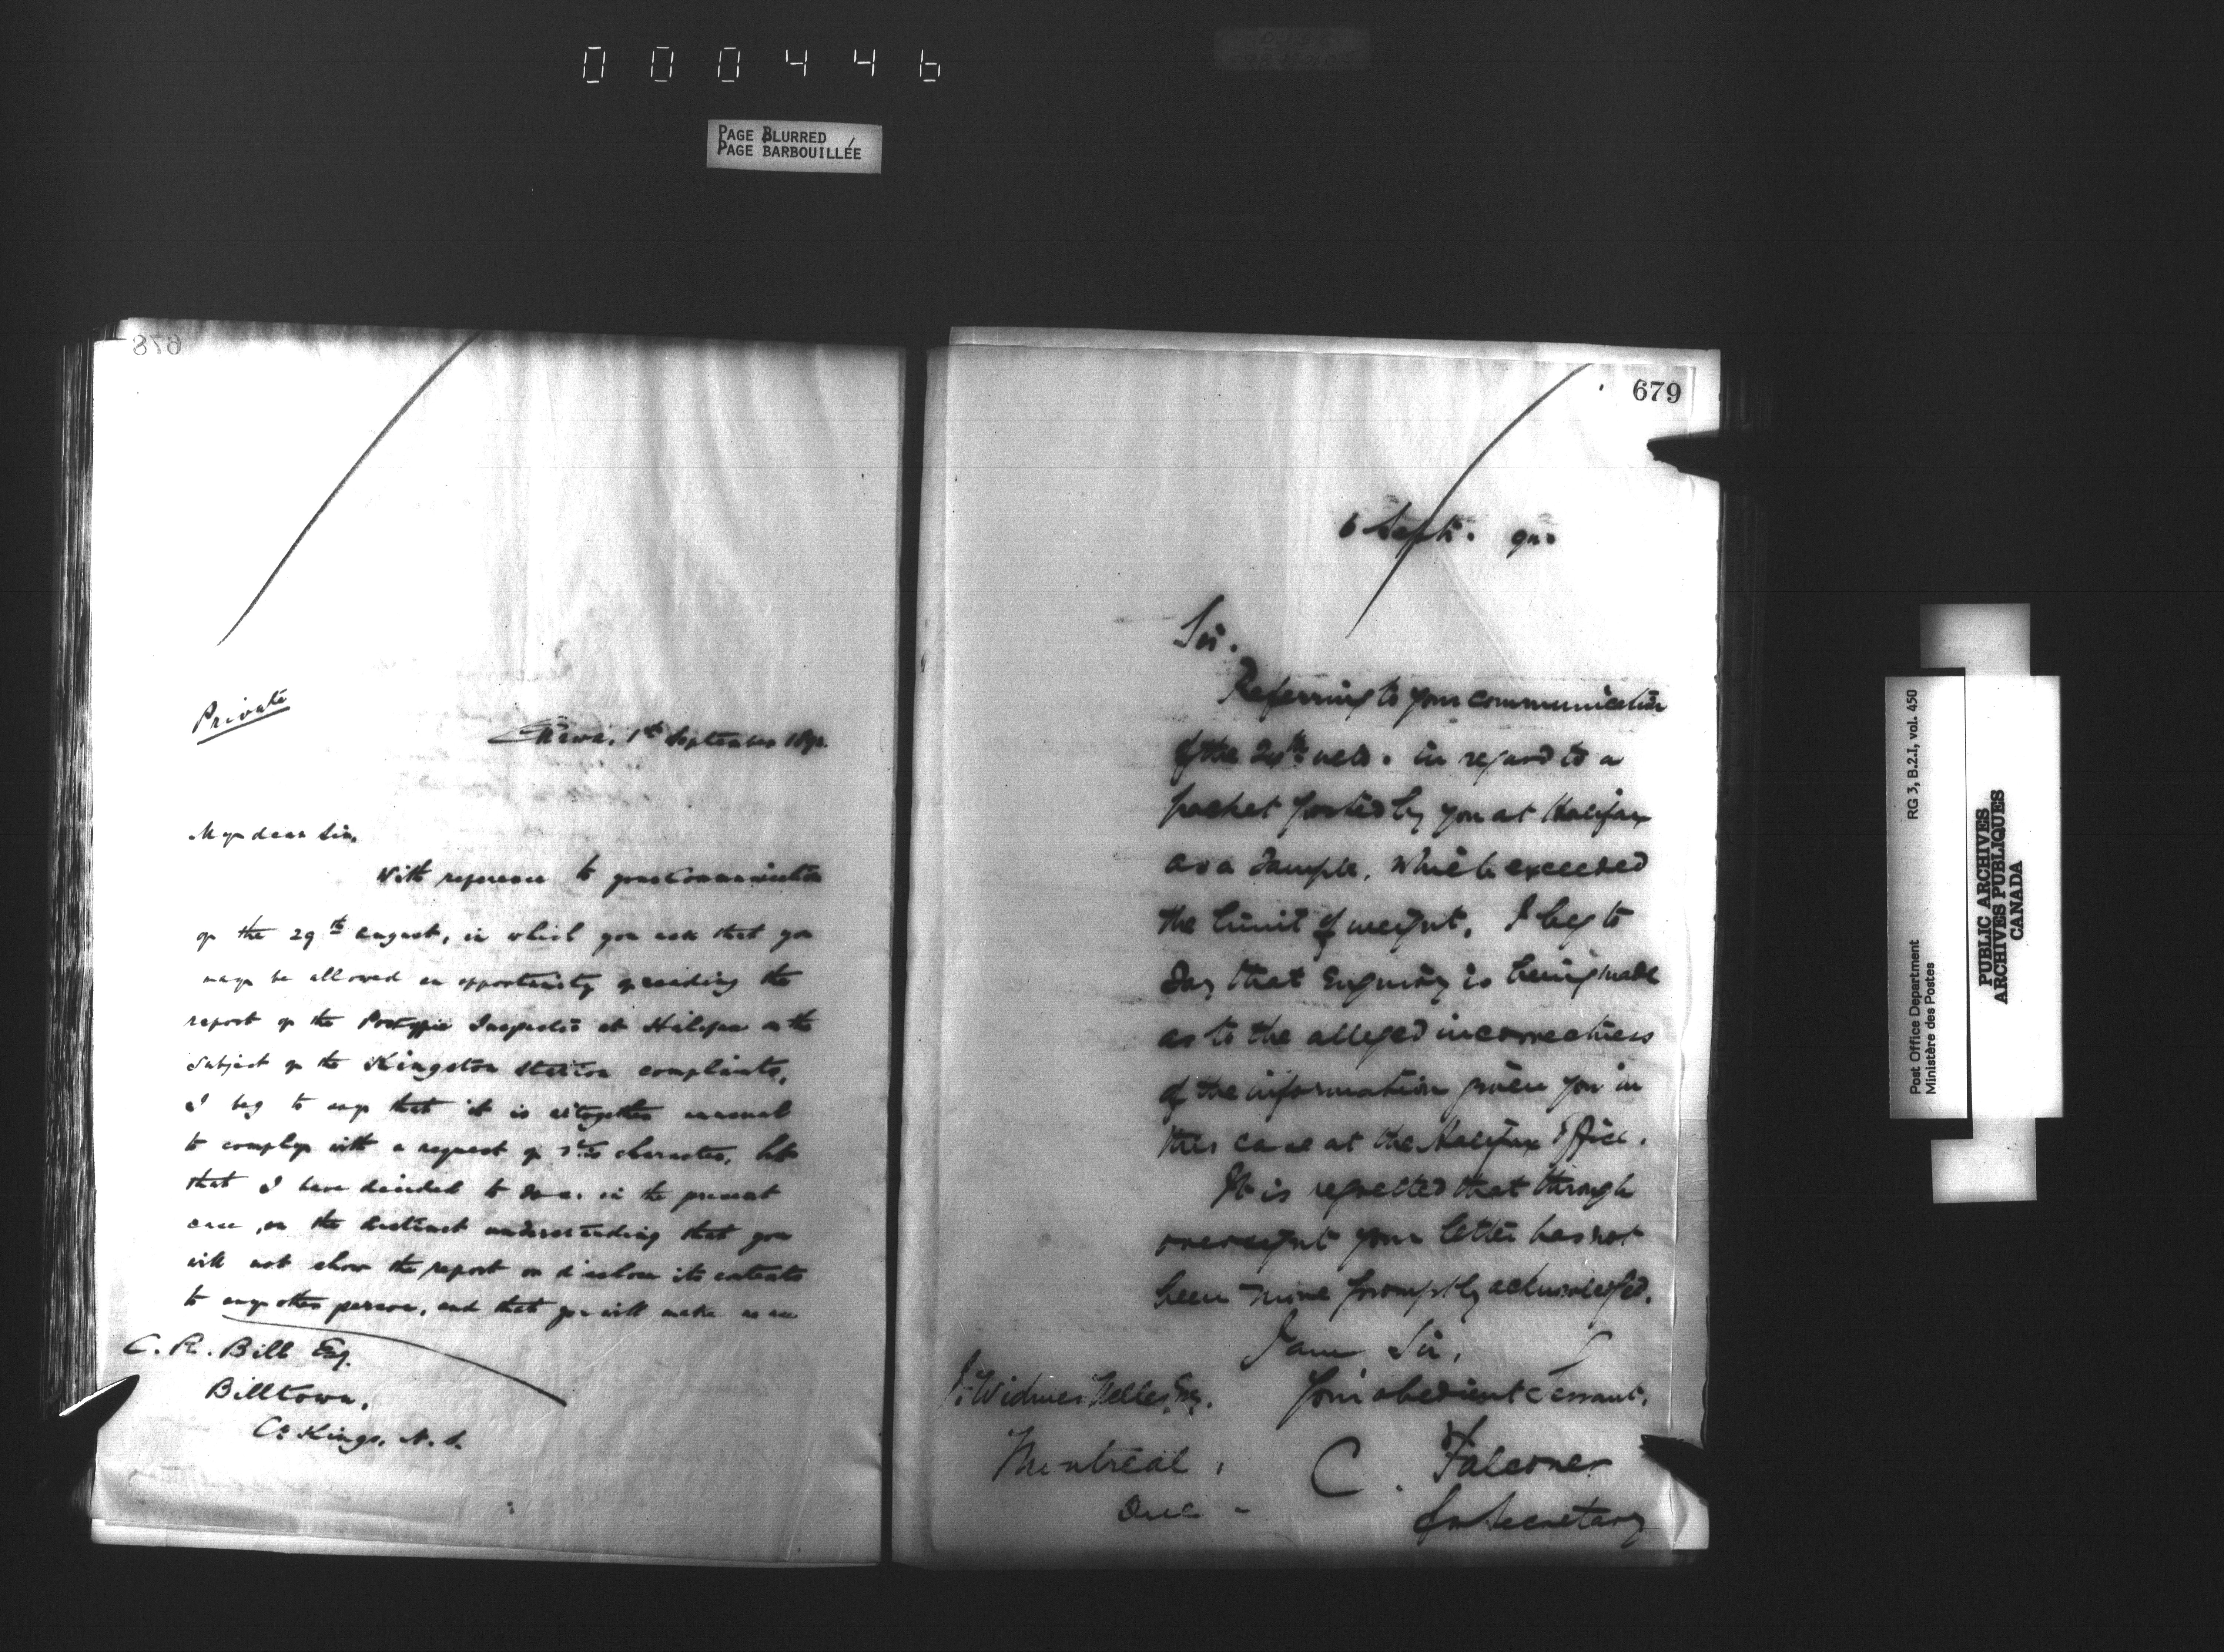 000446
PAGE BLURRED
PAGE BARBOUILLÉE
678
Private
Ottawa, 1st September 189
My dear Sir,
With reference to your Communication
of the 29th August, in which you ask that you
may be allowed an opportunity of reading the
report of the Postoffice Inspector at Halifax on the
subject of the Kingston Station complaints,
I beg to say that it is altogether unusual
to comply with a request of this character, but
that I have decided to do so in the present
case, on the distinct understanding that you
will not show the report or disclose its contents
to any other person, and that you will make no
C. R. Bill Esq.
Billtown,
Co Kings, N. S.
679
6 Sept. 92
Sir.
Referring to your communication
of the 24th ulto. in regard to a
packet posted by you at Halifax
as a Sample, which exceeded
the limit of weight, I beg to
say that Enquiry is being made
as to the alleged incorrectness
of the information given you in
this case at the Halifax Office.
It is regretted that through
oversight your letter has not
been more promptly acknowledged.
I am, Sir,
Your obedient Servant,
Widmer Nelles Esq.
C. Falconer
Montreal,
for Secretary
Que -
Post Office Department RG 3, B.2.I, vol. 450
Ministère des Postes
PUBLIC ARCHIVES
ARCHIVES PUBLIQUES
CANADA